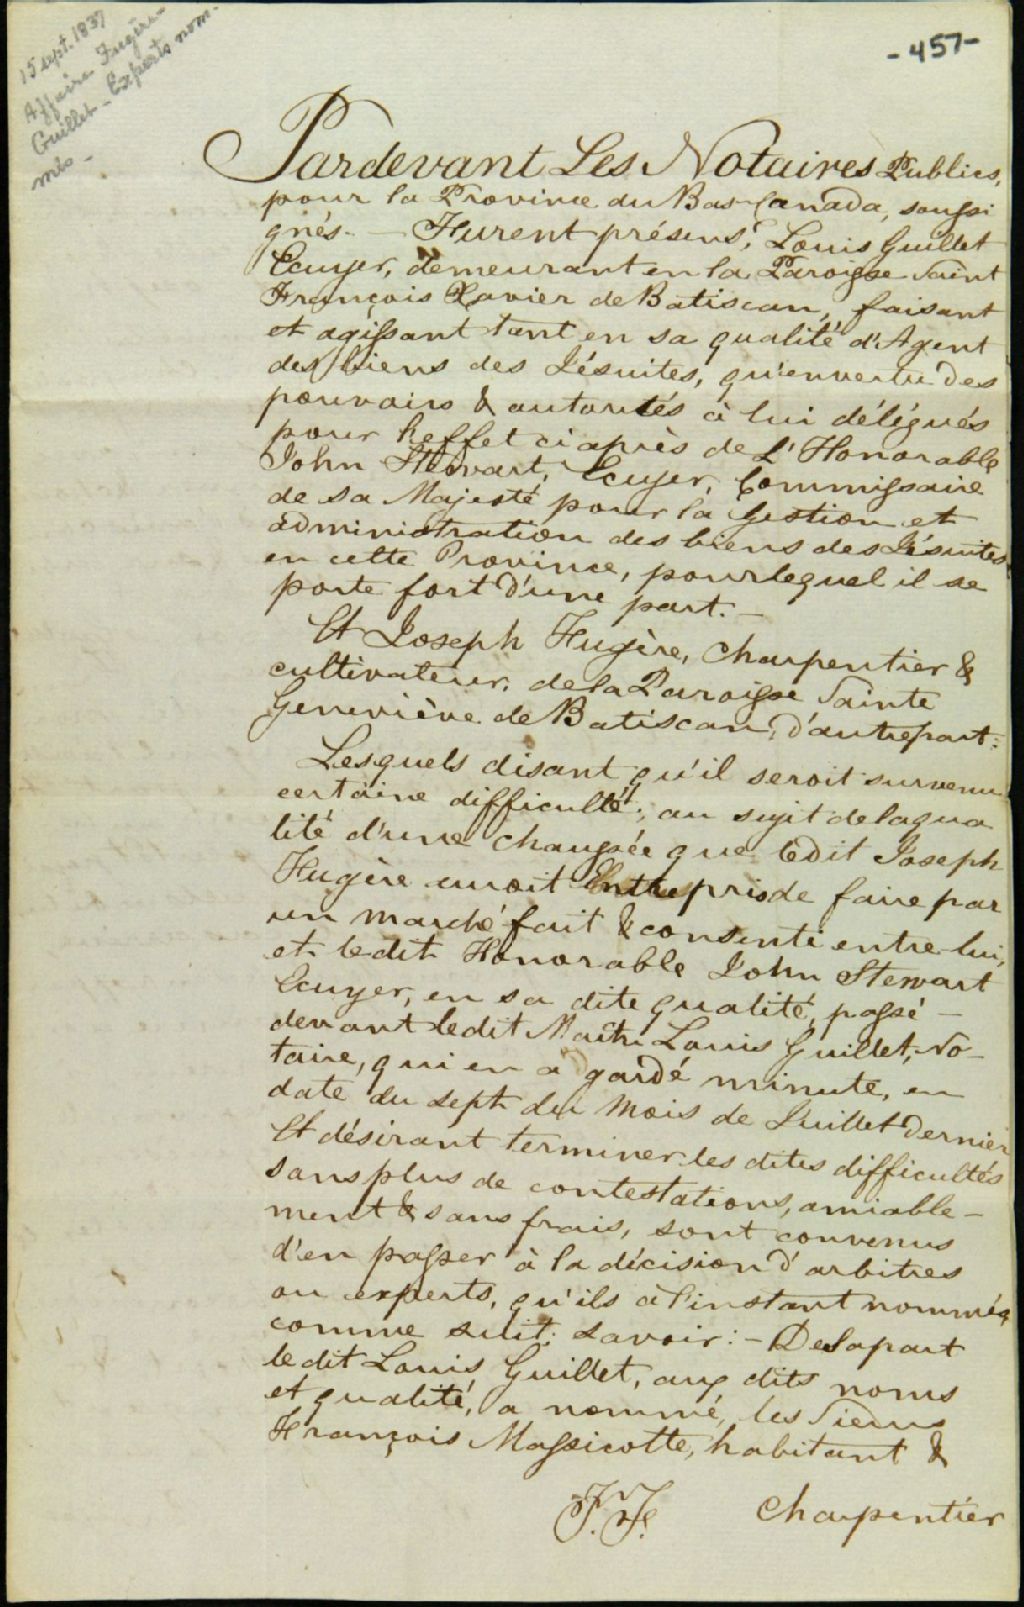 15 sept. 1837
Affaire Fugère-
Guillet - Experts nom-
més -
- 457 -
Pardevant Les Notaires Publics,
pour la Province du Bas-Canada, soussi
gnés. - Furent présens, Louis Guillet
Ecuyer, demeurant en la Paroisse Saint
François Xavier de Batiscan, faisant
et agissant tant en sa qualité d'Agent
des biens des Jésuites, qu'en vertu des
pouvoirs & autorités à lui délégués
pour l'effet ci après de L'Honorable
John Stewart, Ecuyer, Commissaire
de sa Majesté pour la Gestion et
administration des biens des Jésuites
en cette Province, pour lequel il se
porte fort d'une part. -
Et Joseph Fugère, Charpentier &
cultivateur, de la Paroisse Sainte
Geneviève de Batiscan, d'autre part:
Lesquels disant qu'il seroit survenu
certaine difficulté, au sujet de la qua
lité d'une chaussée que ledit Joseph
Fugère auroit Entrepris de faire par
un marché fait & consenti entre lui,
et ledit Honorable John Stewart
Ecuyer, en sa dite qualité, passé -
devant ledit Maître Louis Guillet, No-
taire, qui en a gardé minute, en
date du sept du mois de Juillet dernier
Et désirant terminer les dites difficultés
sans plus de contestations, amiable-
ment & sans frais, sont convenus
d'en passer à la décision d'arbitres
ou experts, qu'ils à l'instant nommés
comme suit: savoir: - De la part
le dit Louis Guillet, aux dits noms
et qualité, a nommé, les Sieurs
François Massicotte, habitant &
J. F. Charpentier